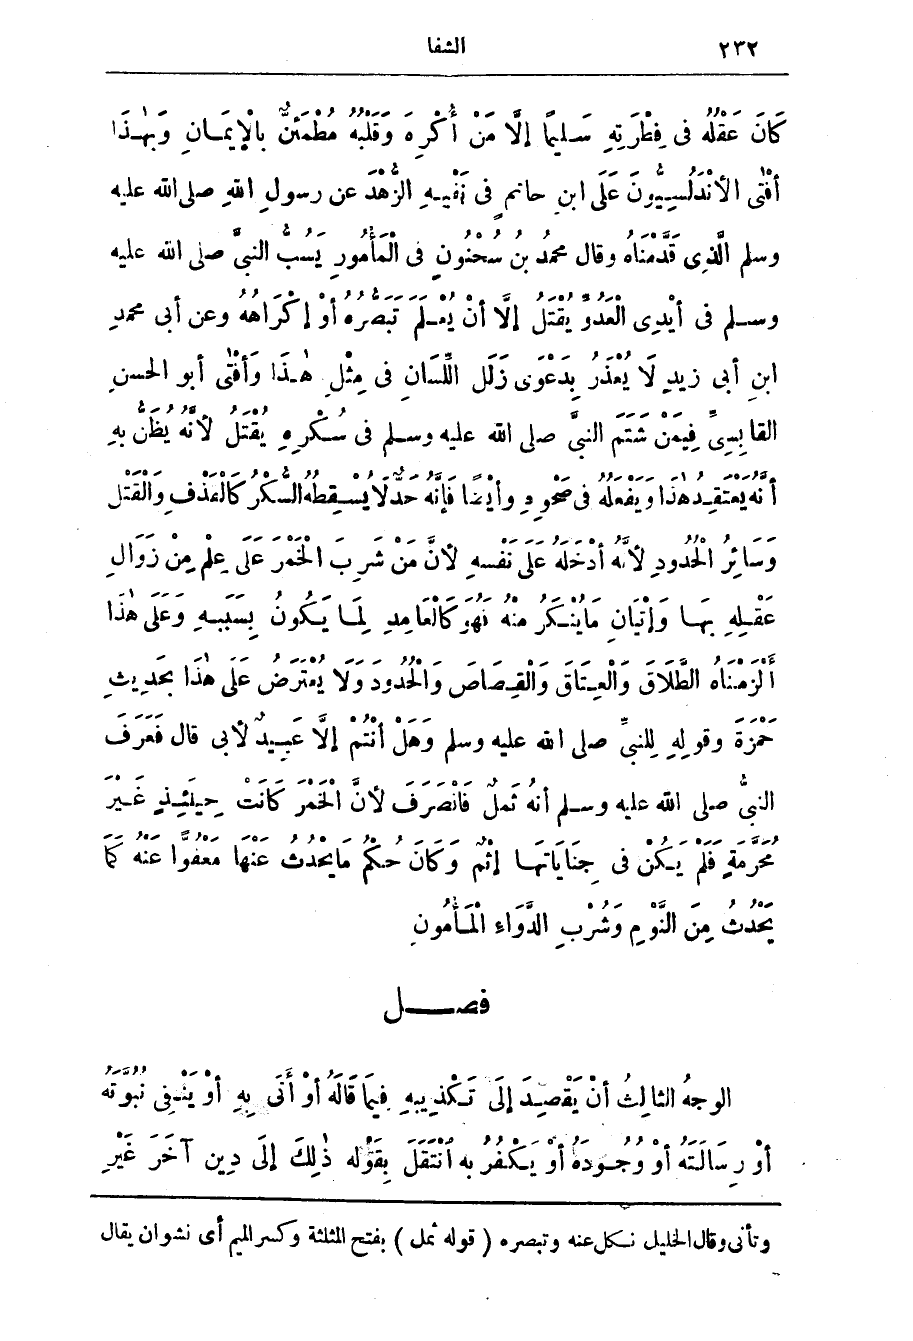 ٢٣٢ الشفا
كَانَ عَقْلُهُ فى فِطْرَتِهِ سَلِيمًا إلَّا مَنْ أُكْرِهَ وَقَلْبُهُ مُطْمَئِنٌّ بالْإِيمَانِ وَبِهٰذَا
أَفْتَى الأَنْدَلُسِيُّونَ عَلَى ابنِ حاتمٍ فى نَفْيِهِ الزُّهْدَ عن رسولِ اللهِ صلى الله عليه
وسلم الَّذِى قَدَّمْنَاهُ وقال محمدُ بنُ سُحْنُونٍ فى الْمَأْمُورِ يَسُبُّ النبىَّ صلى الله عليه
وسلم فى أَيْدِى الْعَدُوِّ يُقْتَلُ إلَّا أَنْ يُعْلَمَ تَبَصُّرُهُ أَوْ إكْرَاهُهُ وعن أبى محمدِ
ابنِ أبى زيدٍ لَا يُعْذَرُ بِدَعْوَى زَلَلِ اللِّسَانِ فى مِثْلِ هٰذَا وَأَفْتَى أبو الحسنِ
القابِسِىُّ فِيمَنْ شَتَمَ النبىَّ صلى الله عليه وسلم فى سُكْرِهِ يُقْتَلُ لأَنَّهُ يُظَنُّ بِهِ
أَنَّهُ يَعْتَقِدُ هٰذَا وَيَفْعَلُهُ فى صَحْوِهِ وأَيْضًا فَإِنَّهُ حَدٌّ لَا يُسْقِطُهُ السُّكْرُ كَالْقَذْفِ والْقَتْلِ
وَسَائِرُ الْحُدُودِ لأَنَّهُ أَدْخَلَهُ عَلَى نَفْسِهِ لأَنَّ مَنْ شَرِبَ الْخَمْرَ عَلَى عِلْمٍ مِنْ زَوَالِ
عَقْلِهِ بِهَا وَإِتْيَانِ مَا يُنْكَرُ مِنْهُ فَهُوَ كَالْعَامِدِ لِمَا يَكُونُ بِسَبَبِهِ وَعَلَى هٰذَا
أَلْزَمْنَاهُ الطَّلَاقَ وَالْعِتَاقَ وَالْقِصَاصَ وَالْحُدُودَ وَلَا يُعْتَرَضُ عَلَى هٰذَا بِحَدِيثِ
حَمْزَةَ وقولِهِ لِلنبىِّ صلى الله عليه وسلم وَهَلْ أَنْتُمْ إلَّا عَبِيدٌ لأَبِى قال فَعَرَفَ
النبىُّ صلى الله عليه وسلم أنه ثَمِلٌ فَانْصَرَفَ لأَنَّ الْخَمْرَ كَانَتْ حِينَئِذٍ غَيْرَ
مُحَرَّمَةٍ فَلَمْ يَكُنْ فى جِنَايَاتِهَا إثْمٌ وَكَانَ حُكْمُ مَا يَحْدُثُ عَنْهَا مَعْفُوًّا عنه كَمَا
يَحْدُثُ مِنَ النَّوْمِ وَشُرْبِ الدَّوَاءِ الْمَأْمُونِ
فصل
الوجهُ الثالِثُ أَنْ يَقْصِدَ إلَى تَكْذِيبِهِ فِيمَا قَالَهُ أَوْ أَتَى بِهِ أَوْ يَنْفِى نُبُوَّتَهُ
أَوْ رِسَالَتَهُ أَوْ وُجُودَهُ أَوْ يَكْفُرُ بِهِ انْتَقَلَ بِقَوْلِهِ ذٰلِكَ إلَى دِينٍ آخَرَ غَيْرِ
وتأنى وقال الخليل نكل عنه وتبصره ( قوله ثمل ) بفتح المثلثة وكسر الميم أى نشوان يقال